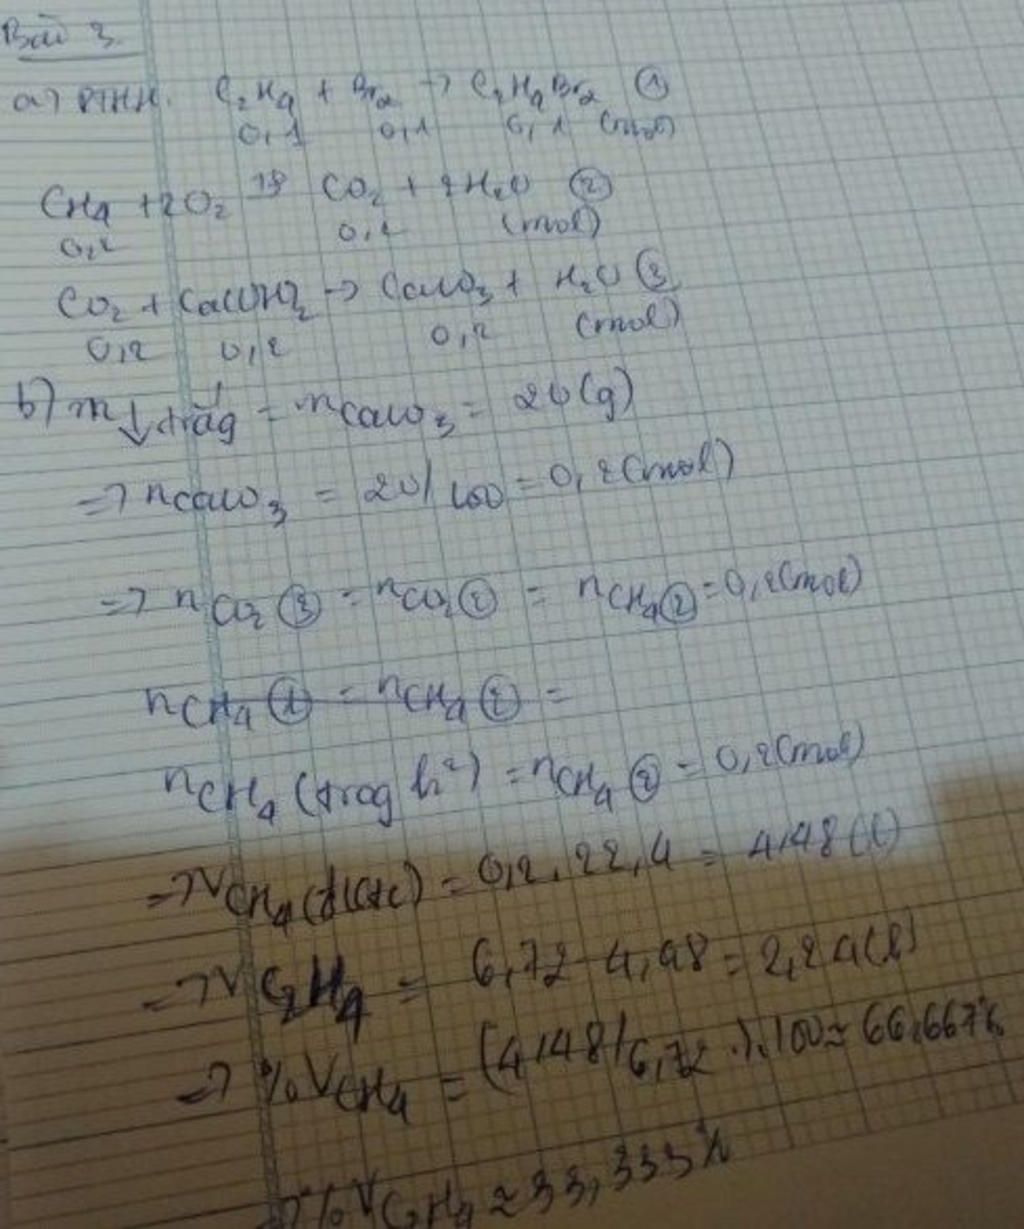 Bài 3
a) PTHH. C₂H₄ + Br₂ → C₂H₄Br₂ ①
0,1 0,1 0,1 (mol)
CH₄ + 2O₂ → CO₂ + 2H₂O ②
0,2 0,2 (mol)
CO₂ + Ca(OH)₂ → CaCO₃ + H₂O ③
0,2 0,2 0,2 (mol)
b) m↓ trắg = mCaCO₃ = 20(g)
=> nCaCO₃ = 20/100 = 0,2(mol)
=> nCO₂ ③ = nCO₂ ② = nCH₄ ② = 0,2(mol)
nCH₄ ① = nCH₄ ② =
nCH₄ (trog h²) = nCH₄ ② = 0,2(mol)
=> VCH₄ (đktc) = 0,2.22,4 = 4,48(l)
=> VC₂H₄ = 6,72-4,48 = 2,24(l)
=> %VCH₄ = (4,48/6,72).100 ≈ 66,667%
=> %VC₂H₄ ≈ 33,333%